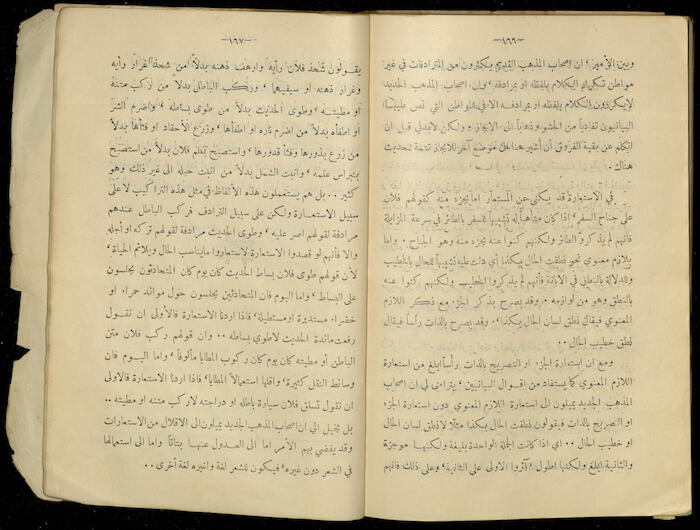 -١٦٦-
وبين الأمير، ان اصحاب المذهب القديم يكثرون من المترادفات في غير
مواطن تكرير الكلام بلفظه او بمرادفه، فان اصحاب المذهب الجديد
لا يكررون الكلام بلفظه او بمرادفه الا في المواطن التي نص عليها
البيانيون تفادياً من الحشو وذهاباً الى الايجاز، ولكن لا بد لي قبل ان
اتكلم عن بقية الفروق أن أشير هنا الى موضعه آخر للايجاز تتمة للحديث
هناك.
في الاستعارة قد يكنى عن المستعار اما بجزء منه كقولهم فلان
على جناح السفر، اذا كان متأهباً له تشبيهاً للسفر بالطائر في سرعة المزايلة
فانهم لم يذكروا الطائر ولكنهم كنوا عنه بجزء منه وهو الجناح. واما
بلازم معنوي نحو نطقت الحال بكذا، أي دلت عليه تشبيهاً للحال بالخطيب
وللدلالة بالنطق في الابانة فأنهم لم يذكروا الخطيب ولكنهم كنوا عنه
بالنطق وهو من لوازمه. وقد يصرح بذكر الجزء مع ذكر اللازم
المعنوي فيقال نطق لسان الحال بكذا، وقد يصرح بالذات رأساً فيقال
نطق خطيب الحال..
ومع ان استعارة الجزء او التصريح بالذات رأساً ابلغ من استعارة
اللازم المعنوي كما يستفاد من اقوال البيانيين، يتراءى لي ان اصحاب
المذهب الجديد يميلون الى استعارة اللازم المعنوي دون استعارة الجزء
او التصريح بالذات فيقولون نطقت الحال بكذا مثلا لا نطق لسان الحال
او خطيب الحال.. اي اذا كانت الجملة الواحدة بليغة ولكنها موجزة
والثانية ابلغ ولكنها اطول، آثروا الاولى على الثانية، وعلى ذلك فانهم
-١٦٧-
يقولون شحذ فلان رأيه وارهف ذهنه بدلاً من شحذ غرار رأيه
وغرار ذهنه او سيفيهما، وركب الباطل بدلاً من ركب متنه
او مطيته، وطوى الحديث بدلاً من طوى بساطه، واضرم الشر
او اطفأه بدلاً من اضرم ناره او اطفأها، وزرع الأحقاد او فثأها بدلاً
من زرع بذورها وفثأ قدورها، واستصبح بعلم فلان بدلاً من استصبح
بنبراس علمه، وانبت الشمل بدلاً من انبت حبله الى غير ذلك وهو
كثير.. بل هم يستعملون هذه الألفاظ في مثل هذه التراكيب لا على
سبيل الاستعارة ولكن على سبيل الترادف فركب الباطل عندهم
مرادفة لقولهم اصر عليه، وطوى الحديث مرادفة لقولهم تركه او أجله
والا فأنهم لو قصدوا الاستعارة لاستعاروا ما يناسب الحال ويلائم الحياة،
لأن قولهم طوى فلان بساط الحديث كان يوم كان المتحادثون يجلسون
على البساط، واما اليوم فان المتحادثين يجلسون حول موائد حمراء او
خضراء مستديرة او مستطيلة، فاذا اردنا الاستعارة فالأولى ان نقول
رفعت مائدة الحديث لا طوي بساطه.. وان قولهم ركب فلان متن
الباطل أو مطيته كان يوم كان ركوب المطايا مألوفاً، واما اليوم فان
وسائط النقل كثيرة، واقلها استعمالاً المطايا، فاذا اردنا الاستعارة فالاولى
ان نقول تسلق فلان سيارة باطله او دراجته لا ركب متنه او مطيته..
بل يخيل الي ان اصحاب المذهب الجديد يميلون الى الاقلال من الاستعارات
وقد يفضي بهم الأمر اما الى العدول عنها بتاتاً واما الى استعمالها
في الشعر دون غيره، فيكون للشعر لغة ولغيره لغة أخرى..